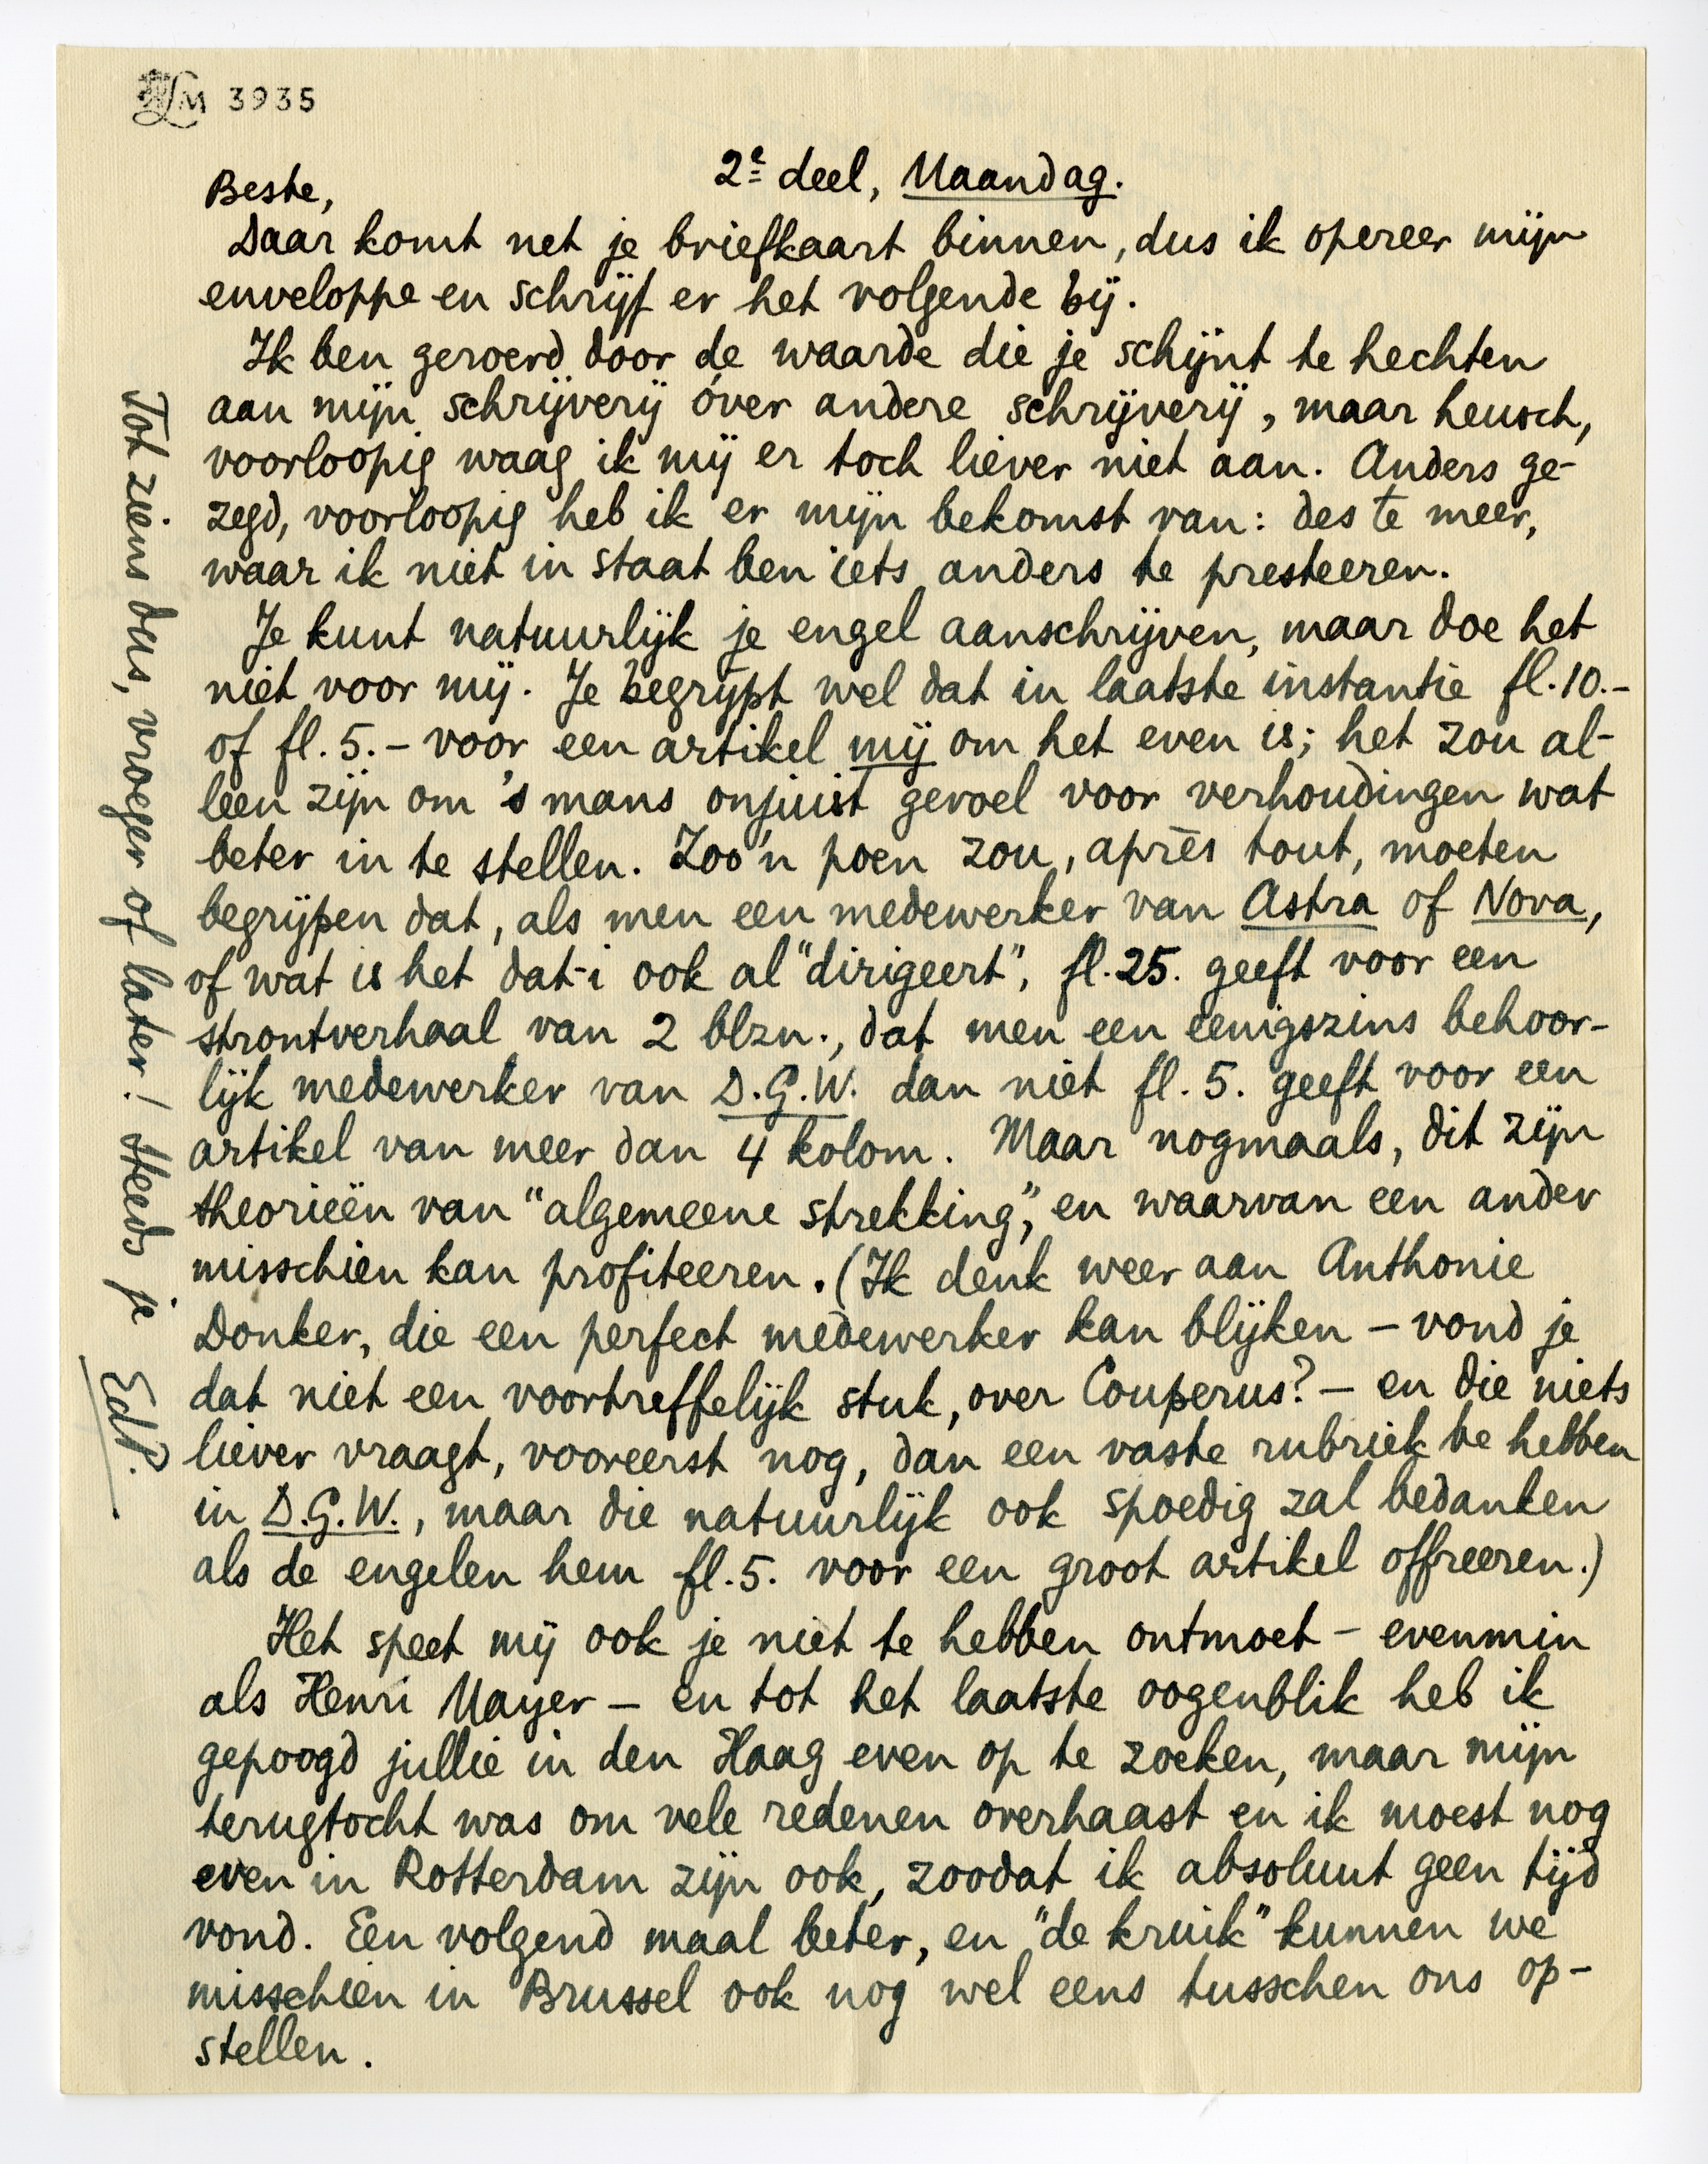 LM 3935
2e deel, Maandag.
Beste,
Daar komt net je briefkaart binnen, dus ik opereer mijn
enveloppe en schrijf er het volgende bij.
Ik ben geroerd door de waarde die je schijnt te hechten
aan mijn schrijverij óver andere schrijverij, maar heusch,
voorloopig waag ik mij er toch liever niet aan. Anders ge-
zegd, voorloopig heb ik er mijn bekomst van: des te meer,
waar ik niet in staat ben iets anders te presteeren.
Je kunt natuurlijk je engel aanschrijven, maar doe het
niet voor mij. Je begrijpt wel dat in laatste instantie fl.10.-
of fl.5.- voor een artikel mij om het even is; het zou al-
leen zijn om 's mans onjuist gevoel voor verhoudingen wat
beter in te stellen. Zoo'n poen zou, après tout, moeten
begrijpen dat, als men een medewerker van Astra of Nova,
of wat is het dat-i ook al "dirigeert", fl.25. geeft voor een
strontverhaal van 2 blzn., dat men een eenigszins behoor-
lijk medewerker van D.G.W. dan niet fl.5. geeft voor een
artikel van meer dan 4 kolom. Maar nogmaals, dit zijn
theorieën van "algemeene strekking", en waarvan een ander
misschien kan profiteeren. (Ik denk weer aan Anthonie
Donker, die een perfect medewerker kan blijken - vond je
dat niet een voortreffelijk stuk, over Couperus? - en die niets
liever vraagt, vooreerst nog, dan een vaste rubriek te hebben
in D.G.W., maar die natuurlijk ook spoedig zal bedanken
als de engelen hem fl.5. voor een groot artikel offreeren.)
Het speet mij ook je niet te hebben ontmoet - evenmin
als Henri Mayer - en tot het laatste oogenblik heb ik
gepoogd jullie in den Haag even op te zoeken, maar mijn
terugtocht was om vele redenen overhaast en ik moest nog
even in Rotterdam zijn ook, zoodat ik absoluut geen tijd
vond. Een volgend maal beter, en "de kruik" kunnen we
misschien in Brussel ook nog wel eens tusschen ons op-
stellen.
Tot ziens dus, vroeger of later! Steeds je EdP.